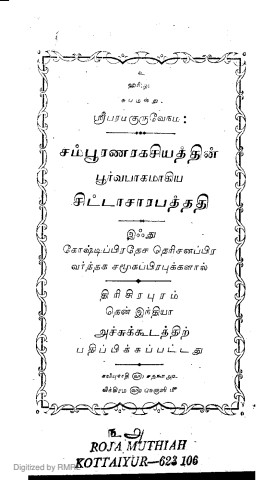 உ
ஸ்ரீபரமகுருவேநம:
சம்பூரணரகசியத்தின்
பூர்வபாகமாகிய
சிட்டாசாரபத்ததி
இஃது
கோஷ்டிப்பிரதேச தெரிசனப்பிர
வர்த்தக சமூகப்பிரபுக்களால்
திரிகிரபுரம்
தென் இந்தியா
அச்சுக்கூடத்திற்
பதிப்பிக்கப்பட்டது
ROJA MUTHIAH
KOTTAIYUR—623 106
Digitized by